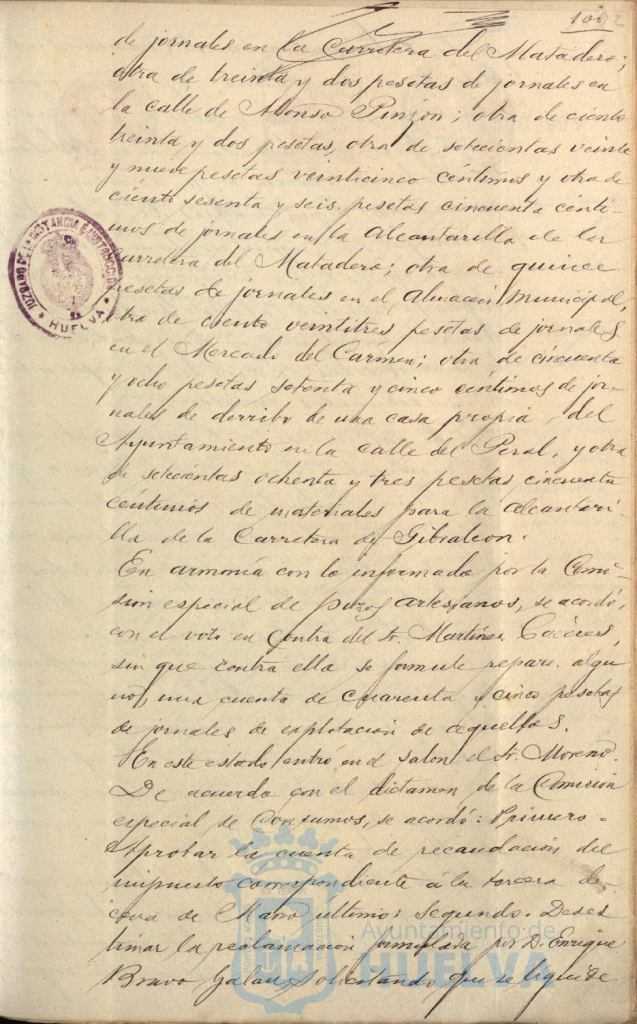 100
de jornales en la Carretera del Matadero;
otra de treinta y dos pesetas de jornales en
la calle de Alonso Pinzon; otra de ciento
treinta y dos pesetas, otra de setecientas veinte
y nueve pesetas veinticinco céntimos y otra de
ciento sesenta y seis pesetas cincuenta cénti-
mos de jornales en la Alcantarilla de la
Carretera del Matadero; otra de quince
pesetas de jornales en el Almacén Municipal,
otra de ciento veintitres pesetas de jornales
en el Mercado del Carmen; otra de cincuenta
y ocho pesetas setenta y cinco céntimos de jor-
nales de derribo de una casa propia del
Ayuntamiento en la calle del Peral, y otra
de setecientas ochenta y tres pesetas cincuenta
céntimos de materiales para la Alcantari-
lla de la Carretera de Gibraleon.
En armonía con lo informado por la Comi-
sion especial de pozos artesianos, se acordó,
con el voto en contra del Sr. Martinez
sin que contra ella se formule reparo algu
no, una cuenta de cuarenta y cinco pesetas
de jornales de explotacion de aquellos.
En este estado entró en el salon el Sr. Moreno.
De acuerdo con el dictamen de la Comision
especial de Consumos, se acordó: Primero.
Aprobar la cuenta de recaudación del
impuesto correspondiente á la tercera de-
cena de Marzo ultimo: Segundo. Deses
timar la reclamacion formulada por D. Enrique
Bravo Galan, solicitando que se liquide
JUZGADO DE 1ª INSTANCIA E INSTRUCCION
HUELVA
Ayuntamiento de
HUELVA